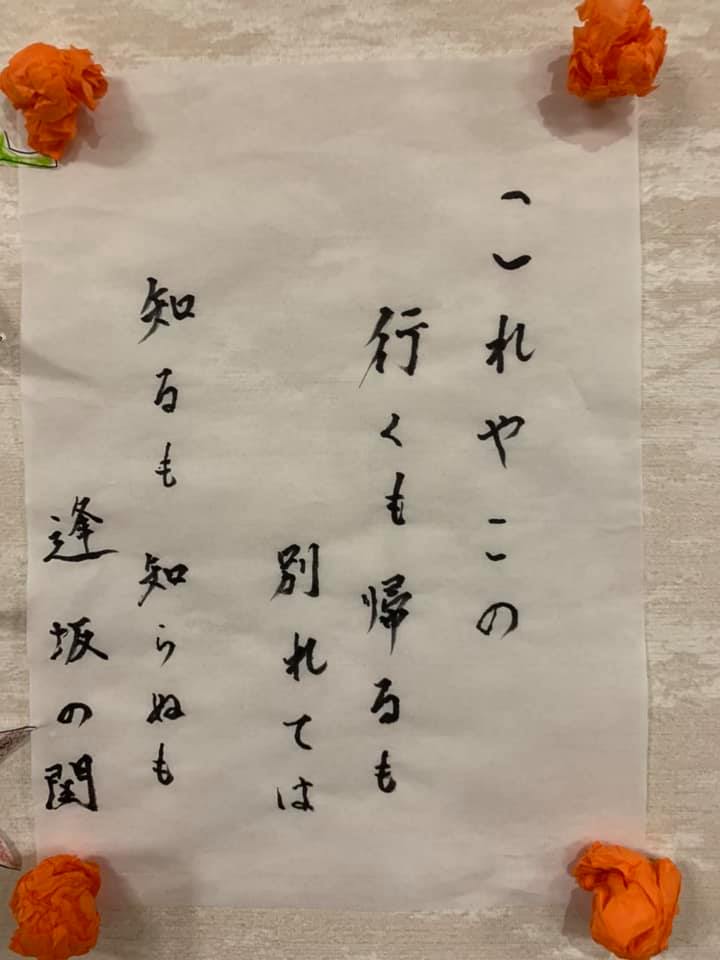 これやこの
行くも帰るも
別れては
知るも知らぬも
逢坂の関